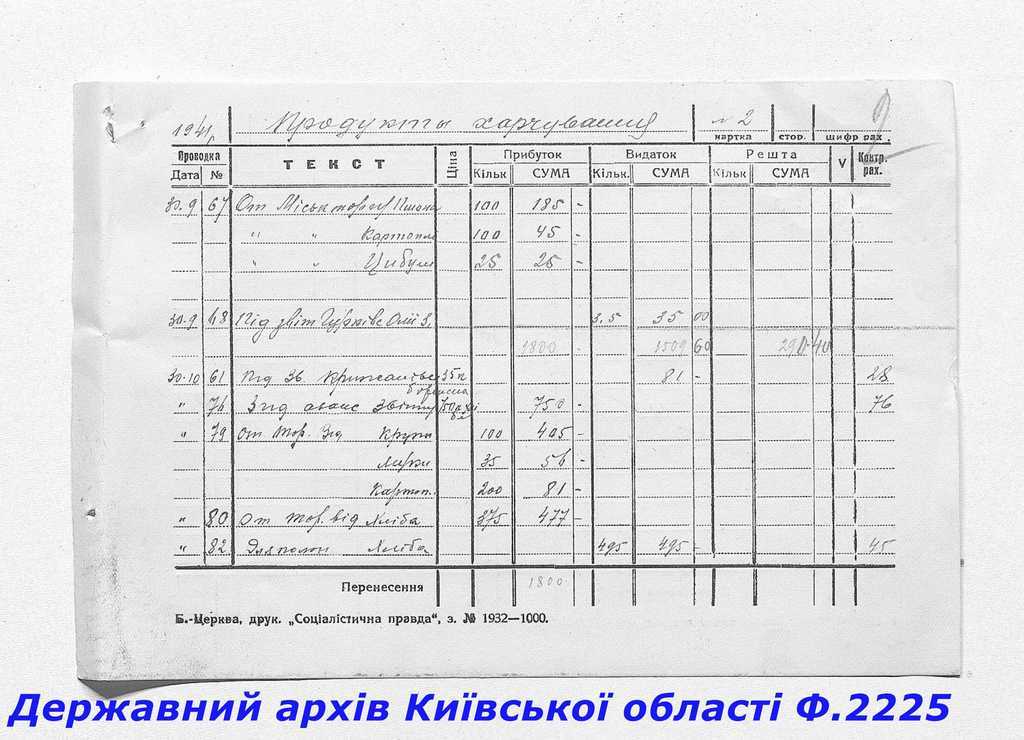 9
1941 Продукты харчування № 2
картка стор. шифр рах.
Проводка ТЕКСТ Ціна Прибуток Видаток Решта V Контр. рах.
Дата № Кільк СУМА Кільк. СУМА Кільк СУМА
30.9 67 От Міськторгу Пшона 100 185 -
" " Картопл 100 45 -
" " Цибул 25 25 -
30.9 68 Під звіт Олії 3,5 35 00
1800 - 1509 60 290 40
30.10 61 35к 81 - 28
" 76 аванс 750 - 76
" 79 От тор. Від Крупи 100 405 -
35 56 -
Картоп. 200 81 -
" 80 От тор. від Хліба 375 477 -
" 82 Для полон Хліба 495 495 - 45
Перенесення 1800
Б.-Церква, друк. „Соціалістична правда“, з. № 1932—1000.
Державний архів Київської області Ф.2225